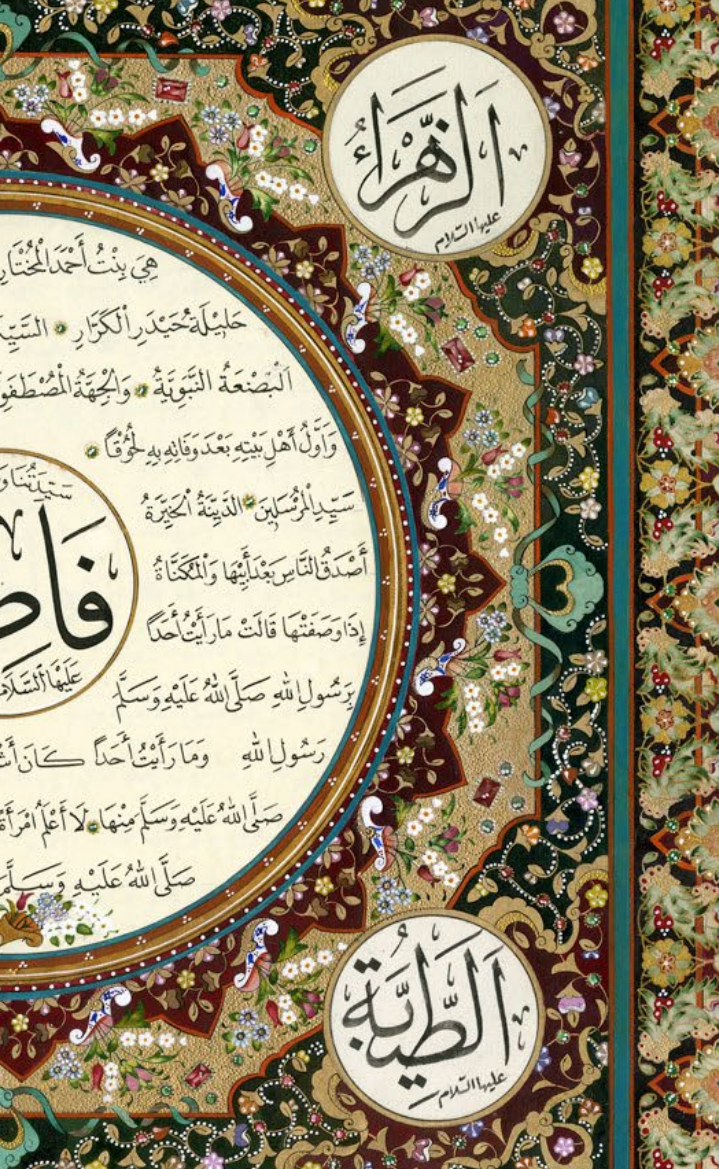 اَلزَّهْرَاءُ
عليها السّلام
هِيَ بِنْتُ أَحْمَدَ الْمُخْتَارِ
حَلِيْلَةُ حَيْدَرِ الْكَرَّارِ السَّيِّدَ
اَلْبَضْعَةُ النَّبَوِيَّةُ وَالْجِهَةُ الْمُصْطَفَوِ
وَاَوَّلُ أَهْلِ بَيْتِهِ بَعْدَ وَفَاتِهِ بِهِ لُحُوْقًا
سَيِّدِ الْمُرْسَلِيْنَ الدَّيِّنَةُ الْخَيِّرَةُ
أَصْدَقُ النَّاسِ بَعْدَ أَبِيْهَا وَالْمُكَنَّاةُ
إِذَا وَصَفَتْهَا قَالَتْ مَا رَأَيْتُ أَحَدًا
بِرَسُولِ اللهِ صَلَّى اللهُ عَلَيْهِ وَسَلَّمَ
رَسُولِ اللهِ وَمَا رَأَيْتُ أَحَدًا كَانَ أَشْ
صَلَّى اللهُ عَلَيْهِ وَسَلَّمَ مِنْهَا لَا أَعْلَمُ امْرَأَةً
صَلَّى اللهُ عَلَيْهِ وَسَلَّمَ
سَيِّدَتُنَا وَ
فَاطِ
عَلَيْهَا السَّلَام
اَلطَّيِّبَةُ
عليها السّلام